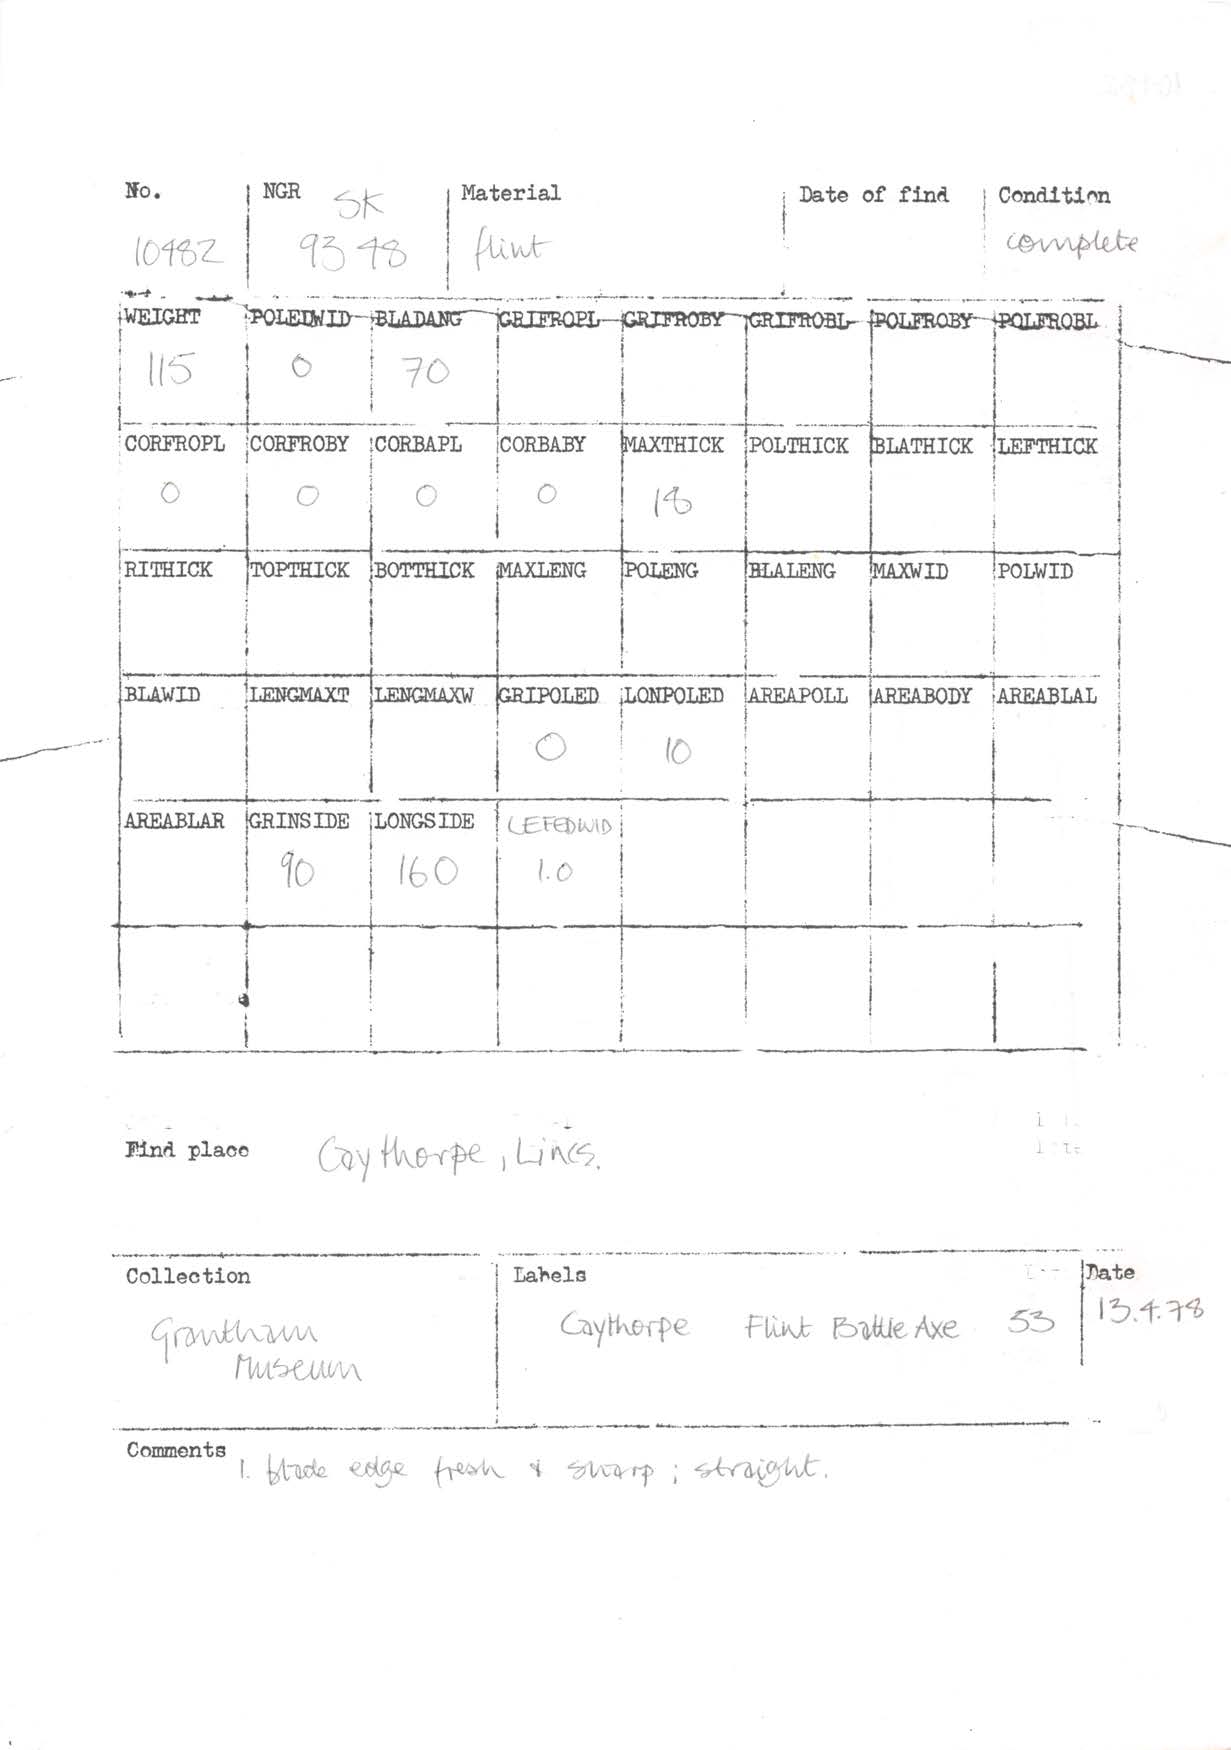 No. NGR SK Material Date of find Condition
10482 9348 flint complete
WEIGHT POLEDWID BLADANG GRIFROPL GRIFROBY GRIFROBL POLFROBY POLFROBL
115 0 70
CORFROPL CORFROBY CORBAPL CORBABY MAXTHICK POLTHICK BLATHICK LEFTHICK
0 0 0 0 18
RITHICK TOPTHICK BOTTHICK MAXLENG POLENG BLALENG MAXWID POLWID
BLAWID LENGMAXT LENGMAXW GRIPOLED LONPOLED AREAPOLL AREABODY AREABLAL
0 10
AREABLAR GRINSIDE LONGSIDE LEFEDWID
90 160 1.0
Find place Caythorpe, Lincs.
Collection Labels Date
Grantham Museum Caythorpe Flint Battle Axe 53 13.4.78
Comments 1. blade edge fresh & sharp; straight.